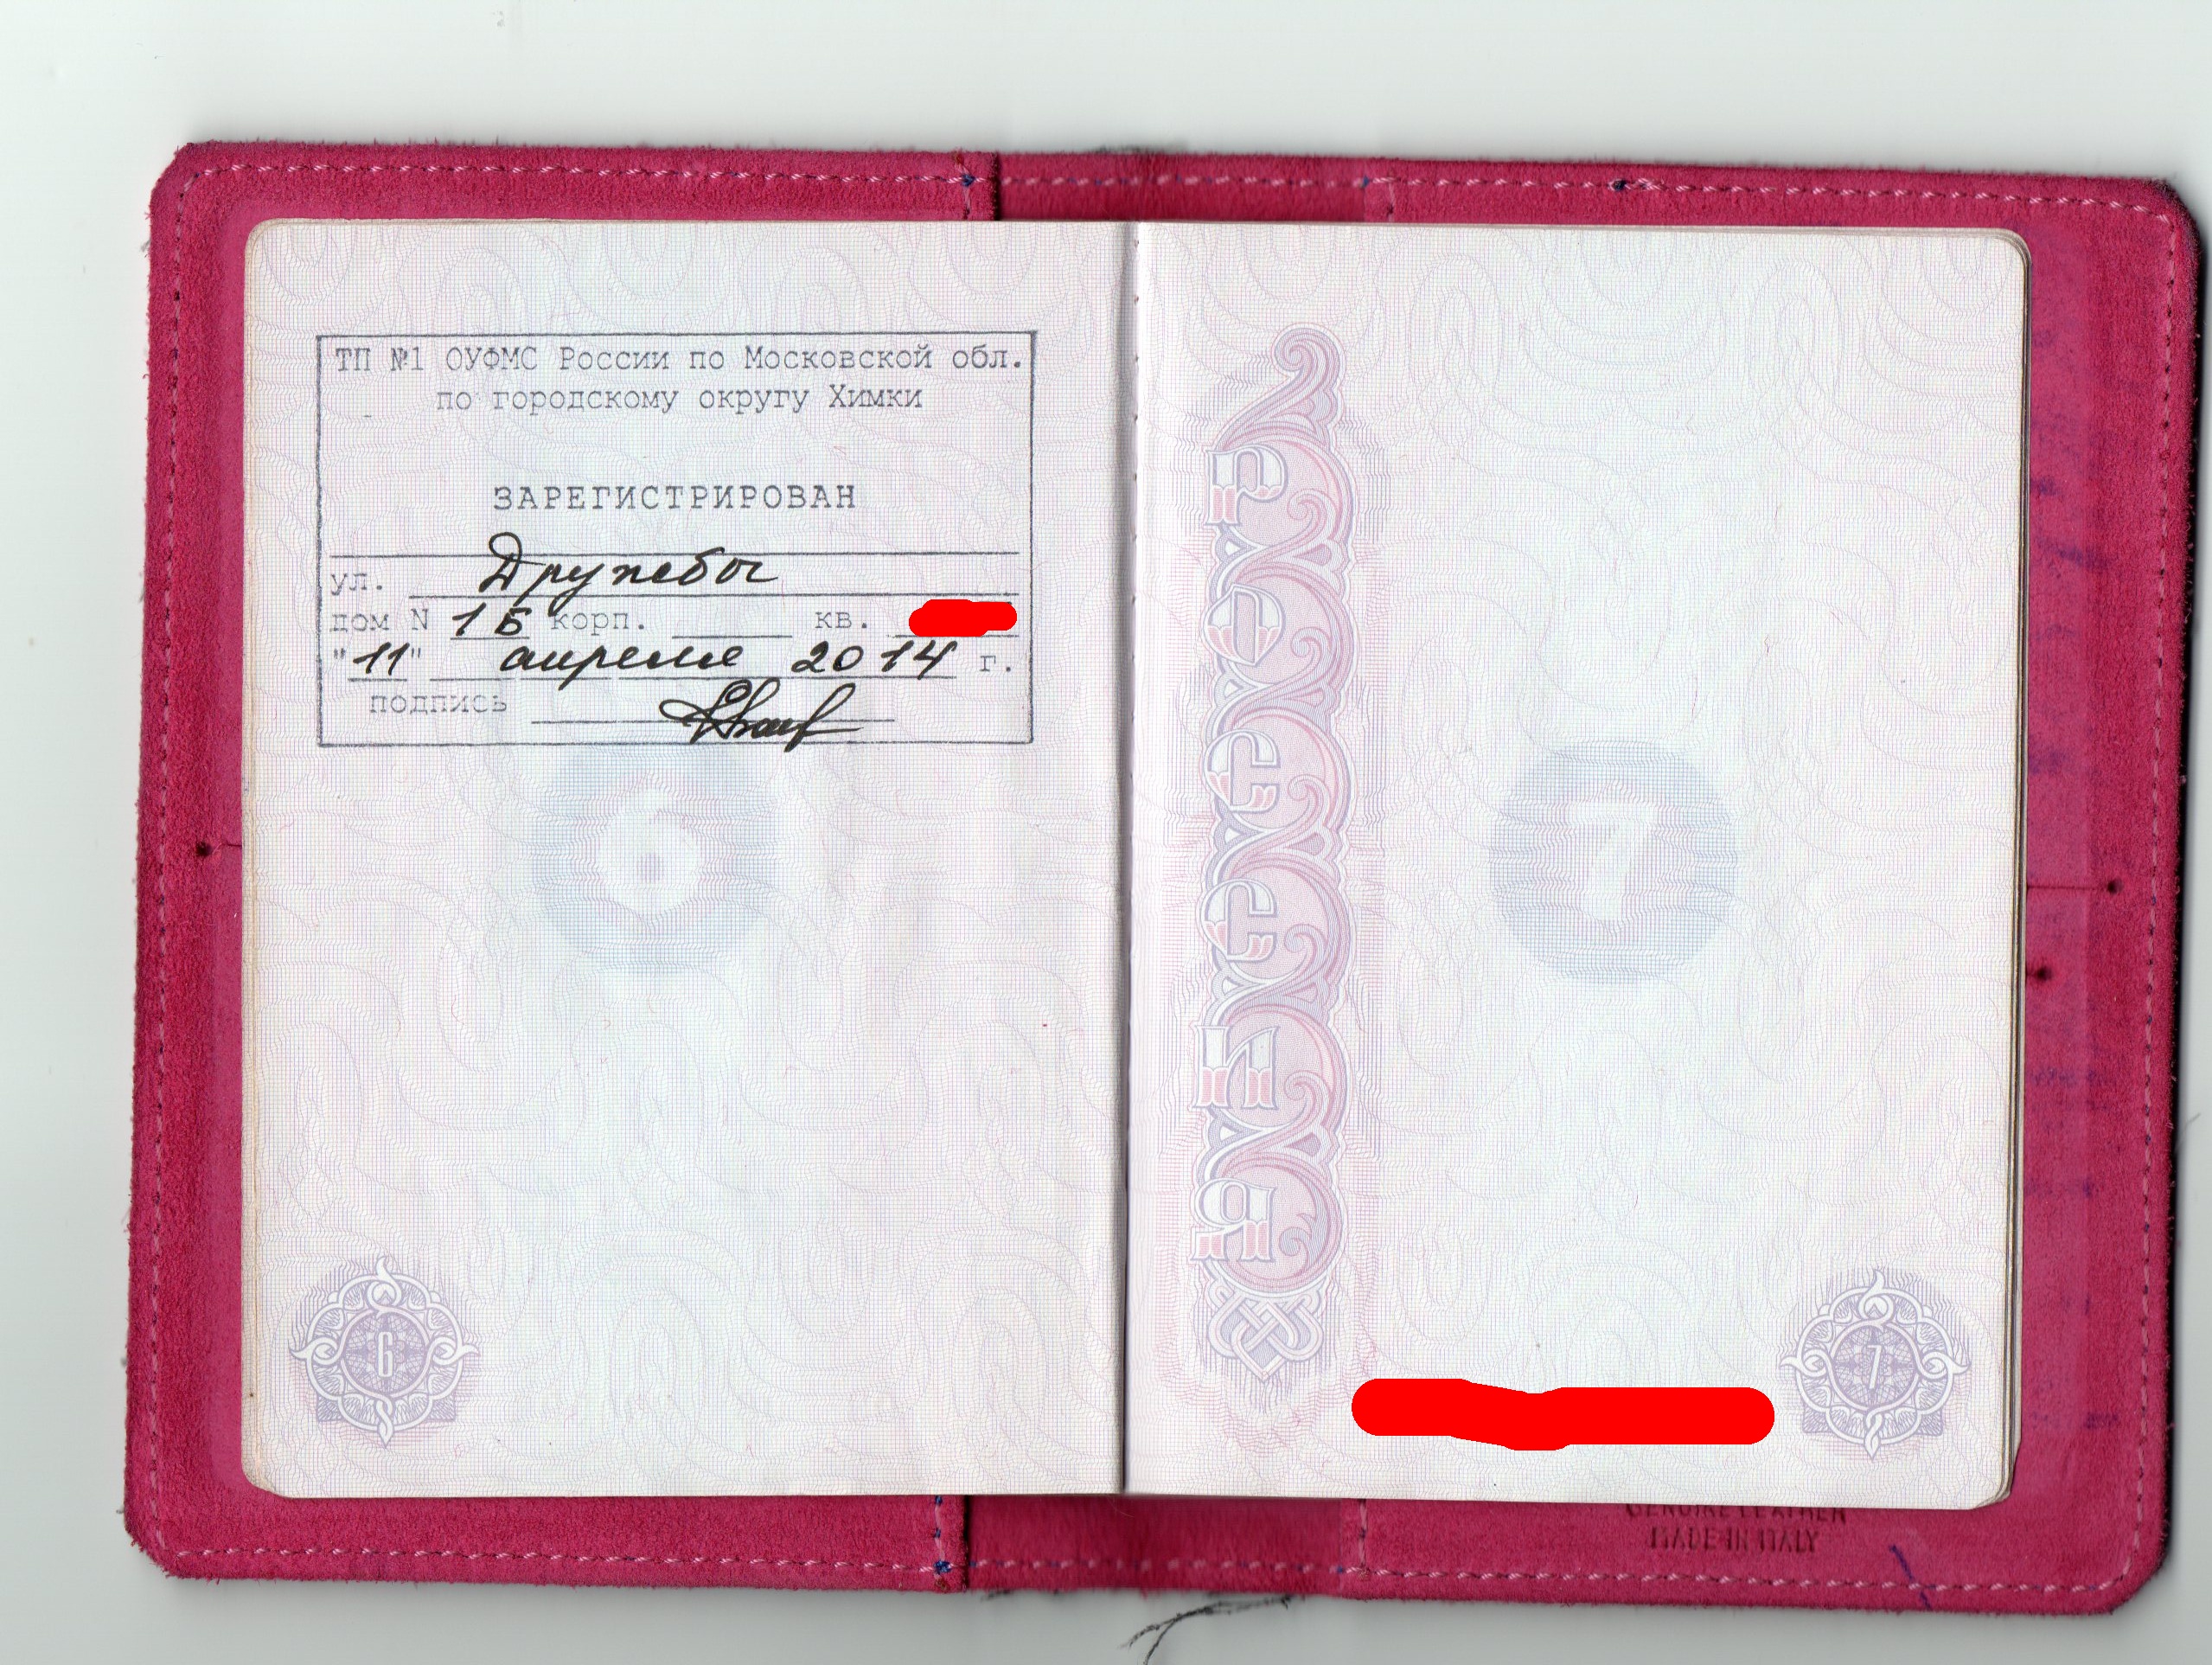 ТП №1 ОУФМС России по Московской обл.
по городскому округу Химки
ЗАРЕГИСТРИРОВАН
ул. Дружбы
дом N 1Б корп. кв.
"11" апреля 2014 г.
подпись
6
6
РОССИЯ
7
7
GENUINE LEATHER
MADE IN ITALY